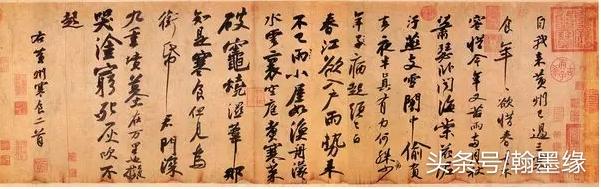 自我來黃州已過三寒
食年〻欲惜春〻去不
容惜今年又苦雨兩月秋
蕭瑟臥聞海棠花泥
汙燕支雪闇中偷負
去夜半真有力何殊少
年子病起頭已白
春江欲入戶雨勢來
不已雨小屋如漁舟濛〻
水雲裏空庖煮寒菜
破竈燒濕葦那
知是寒食但見烏
銜帋君門深
九重墳墓在万里也擬
哭塗窮死灰吹不
起
右黃州寒食二首
头条号/翰墨缘